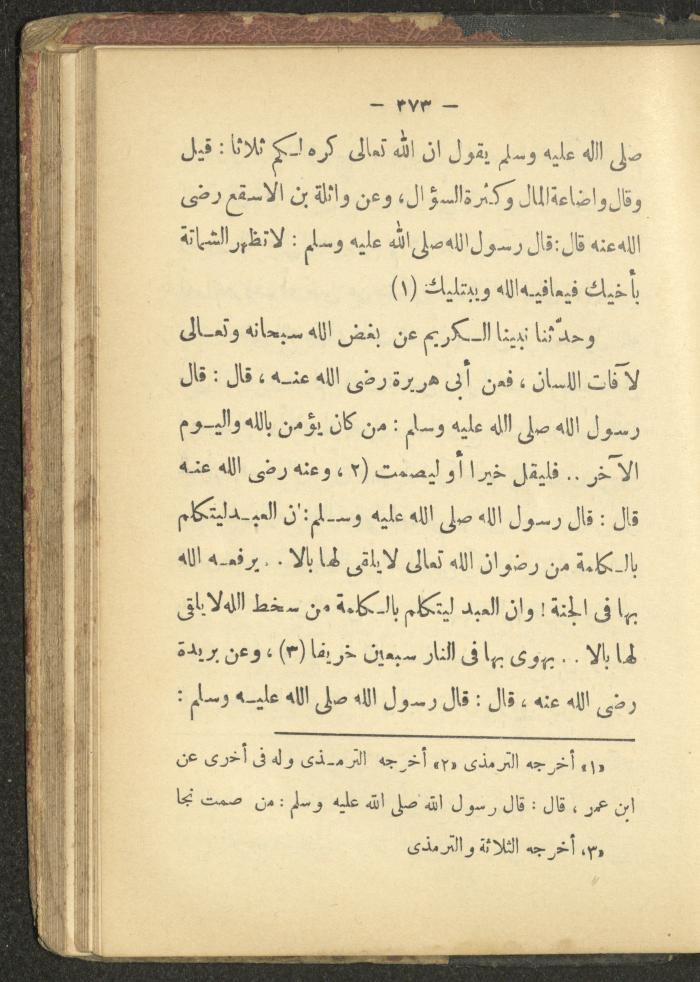 — ٢٧٣ —
صلى الله عليه وسلم يقول ان الله تعالى كره لكم ثلاثا : قيل
وقال واضاعة المال وكثرة السؤال، وعن واثلة بن الاسقع رضى
الله عنه قال : قال رسول الله صلى الله عليه وسلم : لا تظهر الشماتة
بأخيك فيعافيه الله ويبتليك (١)
وحدّثنا نبينا الكريم عن بغض الله سبحانه وتعالى
لآفات اللسان ، فعن أبى هريرة رضى الله عنه ، قال : قال
رسول الله صلى الله عليه وسلم : من كان يؤمن بالله واليوم
الآخر .. فليقل خيرا أو ليصمت (٢ ، وعنه رضى الله عنه
قال : قال رسول الله صلى الله عليه وسلم : ن العبد ليتكلم
بالكلمة من رضوان الله تعالى لا يلقى لها بالا . . يرفعه الله
بها فى الجنة ! وان العبد ليتكلم بالكلمة من سخط الله لا يلقى
لها بالا . . يهوى بها فى النار سبعين خريفا (٣) ، وعن بريدة
رضى الله عنه ، قال : قال رسول الله صلى الله عليه وسلم :
«١» أخرجه الترمذى «٢» أخرجه الترمذى وله فى أخرى عن
ابن عمر ، قال : قال رسول الله صلى الله عليه وسلم : من صمت نجا
«٣، أخرجه الثلاثة والترمذى